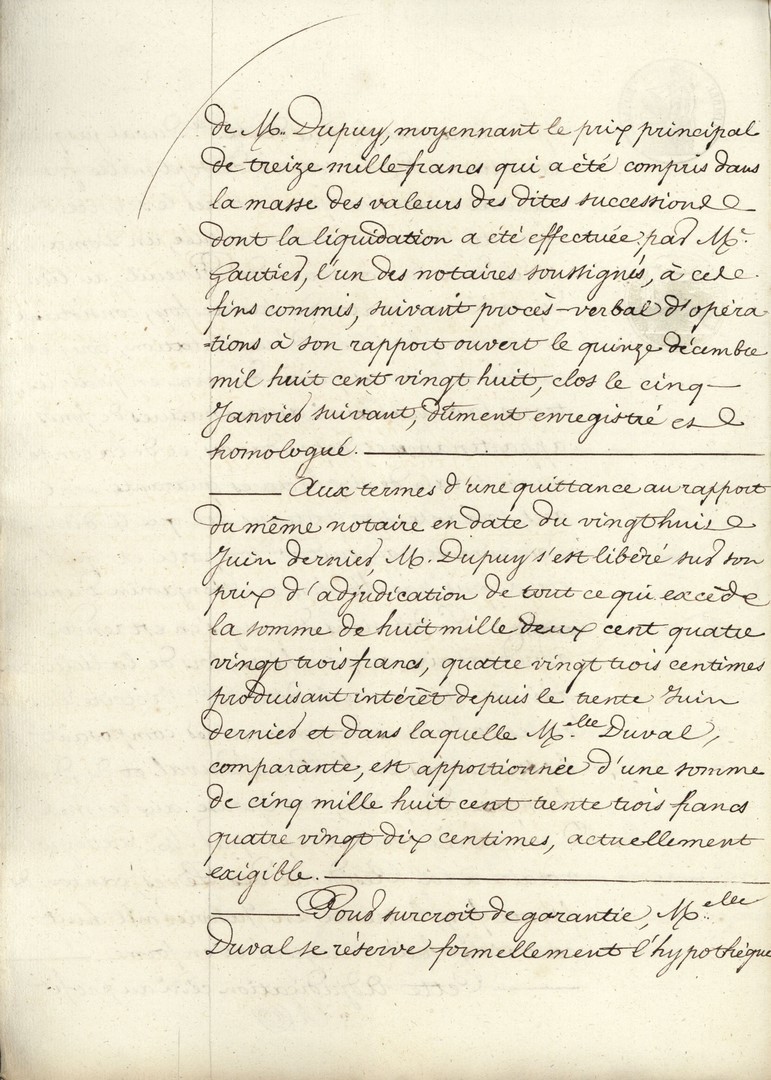 de M. Dupuy, moyennant le prix principal
de treize mille francs qui a été compris dans
la masse des valeurs des dites successions
dont la liquidation a été effectuée par Me.
Gautier, l'un des notaires soussignés, à cete
fins commis, suivant procès-verbal d'opéra
-tions à son rapport ouvert le quinze décembre
mil huit cent vingt huit, clos le cinq
Janvier suivant, dûment enregistré et
homologué.
Aux termes d'une quittance au rapport
du même notaire en date du vingt huit
Juin dernier, M. Dupuy s'est libéré sur son
prix d'adjudication de tout ce qui excède
la somme de huit mille deux cent quatre
vingt trois francs, quatre vingt trois centimes
produisant intérêt depuis le trente Juin
dernier et dans laquelle Melle Duval,
comparante, est apportionnée d'une somme
de cinq mille huit cent trente trois francs
quatre vingt dix centimes, actuellement
exigible.
Pour surcroit de garantie, Melle
Duval se réserve formellement l'hypothèque